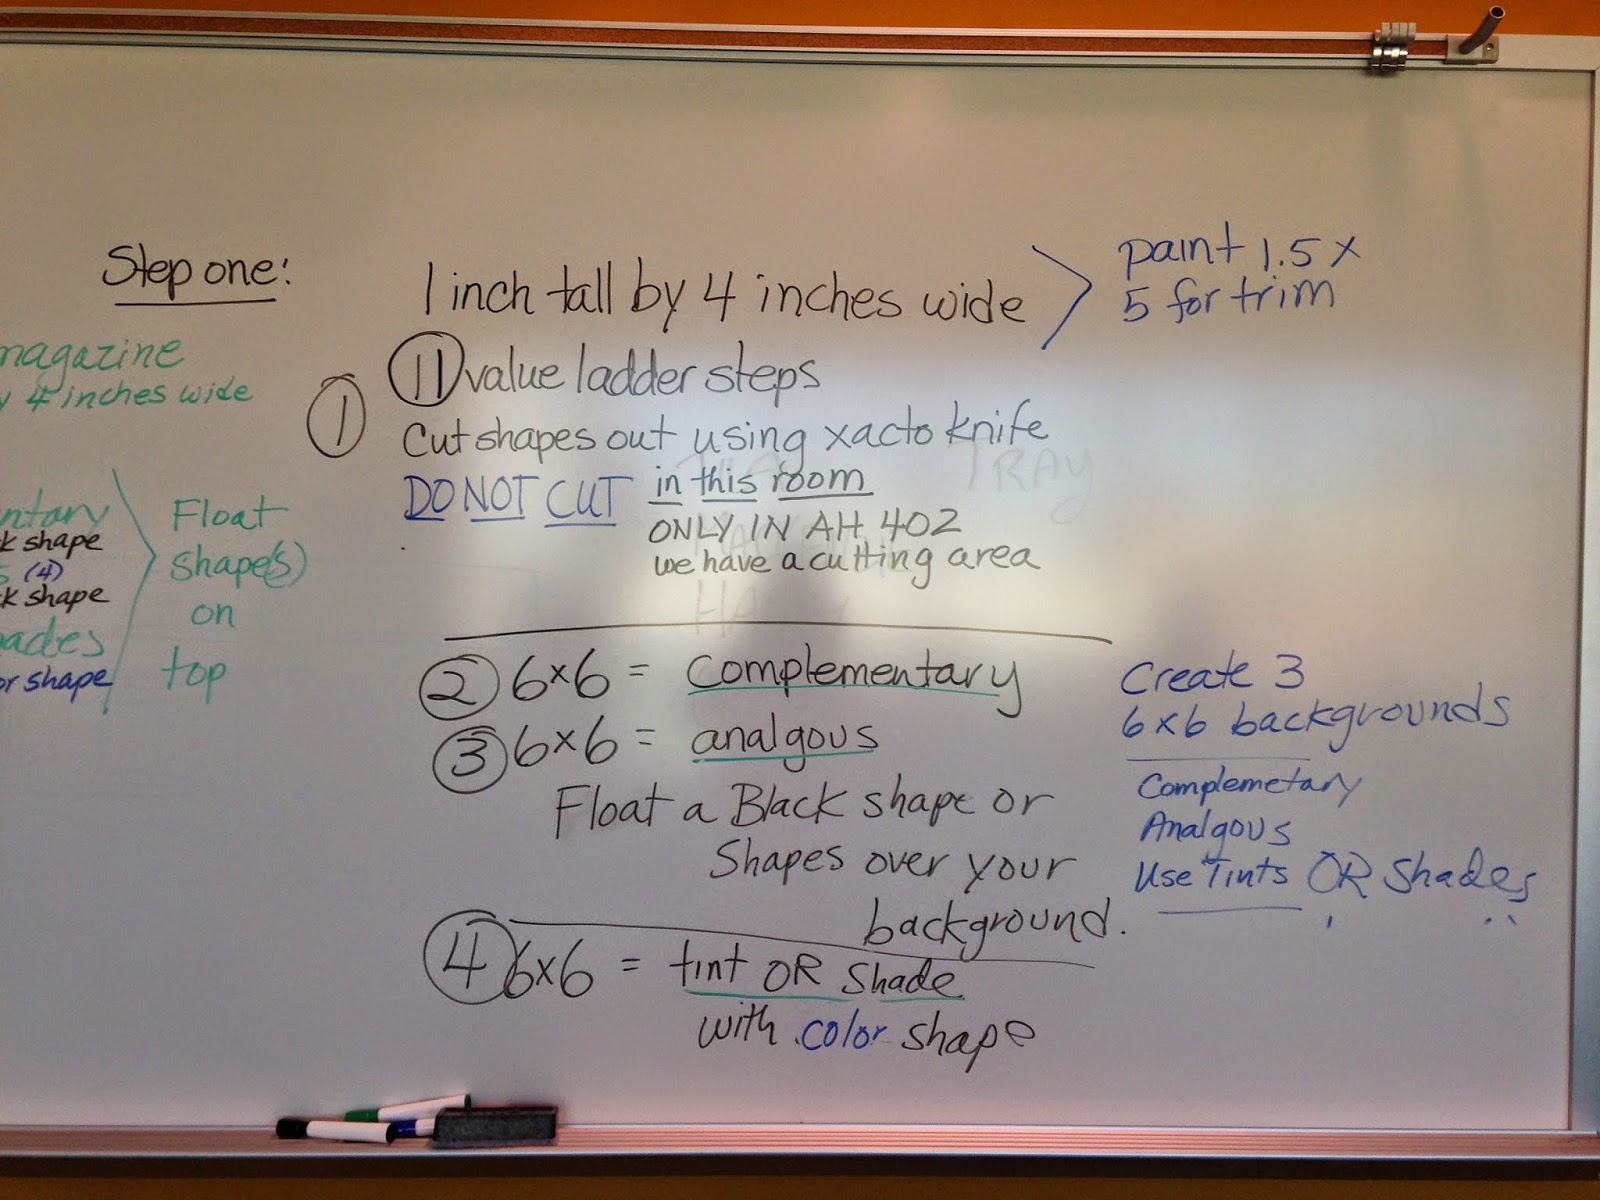 Step one:
magazine
y 4 inches wide
ntary
k shape
s (4)
k shape
ades
or shape
Float
shape(s)
on
top
1 inch tall by 4 inches wide
paint 1.5 x
5 for trim
1
11 value ladder steps
Cut shapes out using xacto knife
DO NOT CUT in this room
ONLY IN AH 402
we have a cutting area
TRAY
2 6x6 = Complementary
3 6x6 = analgous
Float a Black shape or
Shapes over your
background.
4 6x6 = tint OR Shade
with color shape
Create 3
6x6 backgrounds
Complemetary
Analgous
Use Tints OR Shades